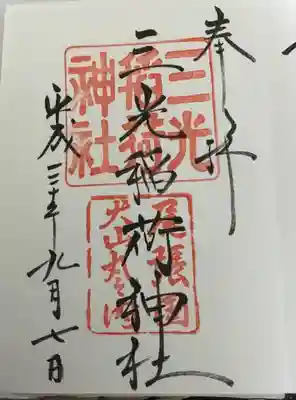 奉拝
三光稲荷神社
平成三十年九月七日
三光
稲荷
神社
尾張国
犬山